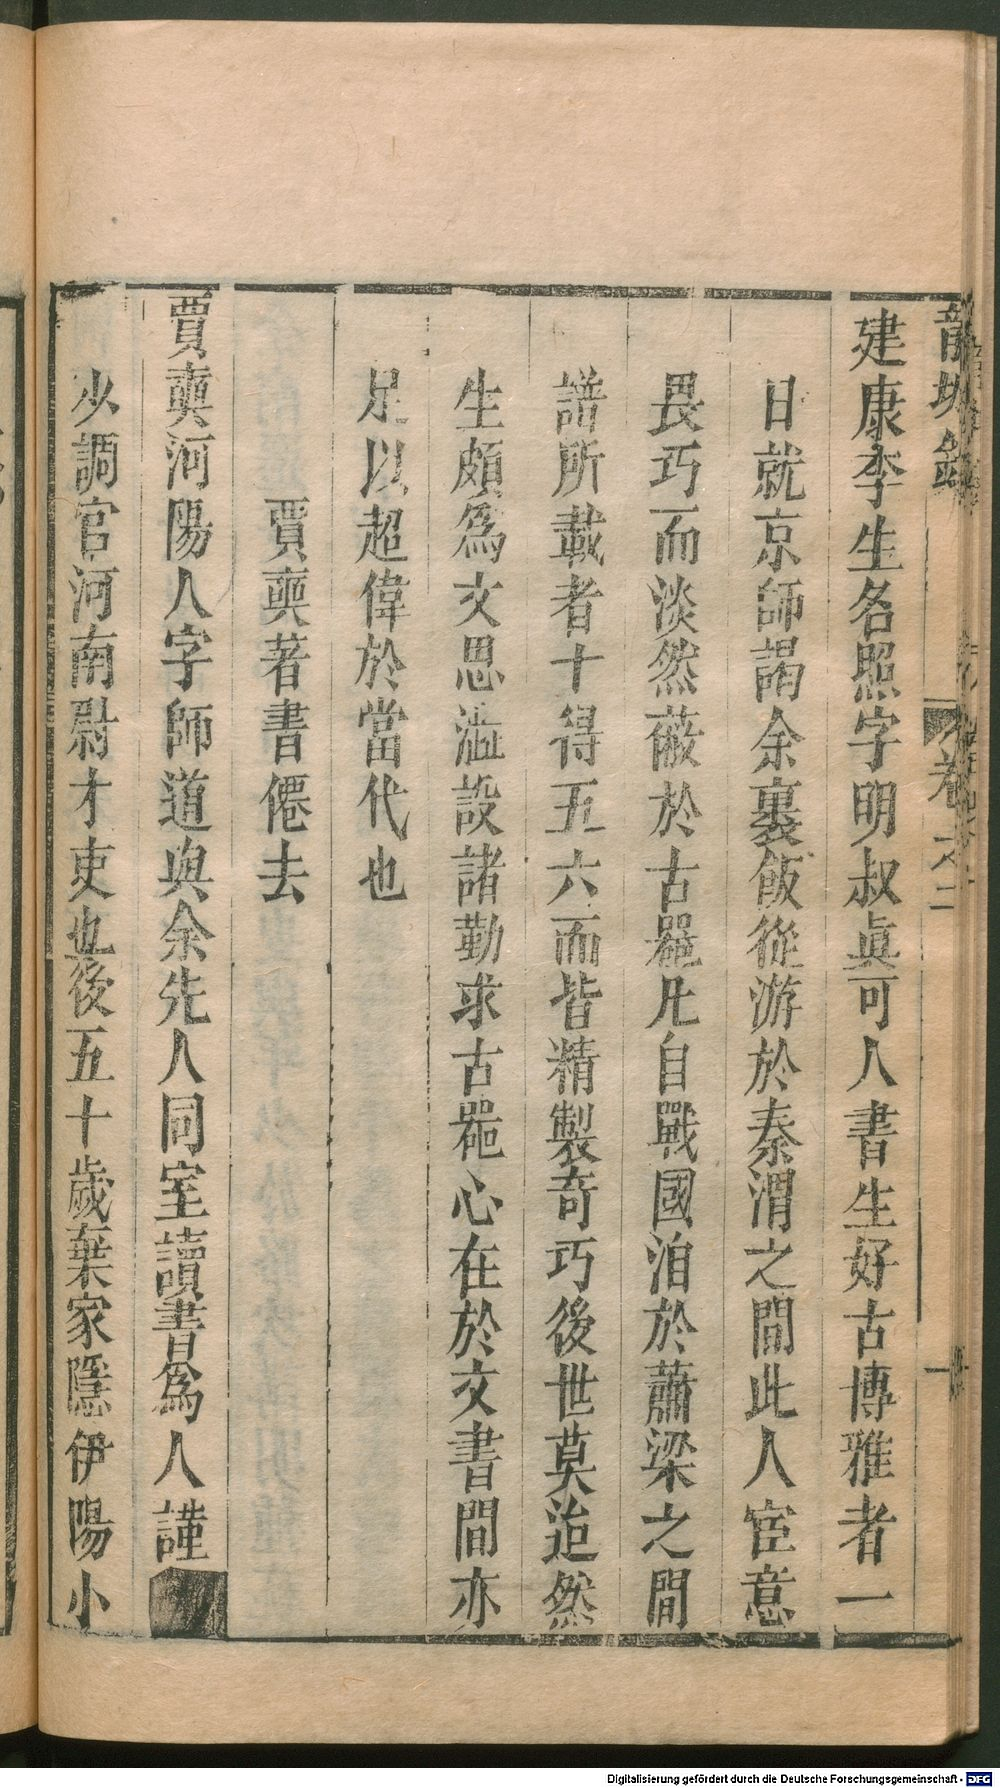 卷之二
一
建康李生名照字明叔眞可人書生好古博雅者一
日就京師謁余裹飯從游於秦渭之間此人宦意
畏巧而淡然蔽於古噐凡自戰國洎於蕭梁之間
譜所載者十得五六而皆精製奇巧後世莫迨然
生頗爲文思澁設諸勤求古噐心在於文書間亦
足以超偉於當代也
賈奭著書僊去
賈奭河陽人字師道與余先人同室讀書爲人謹
火調官河南尉才吏也後五十歲棄家隱伊陽小
Digitalisierung gefördert durch die Deutsche Forschungsgemeinschaft - DFG